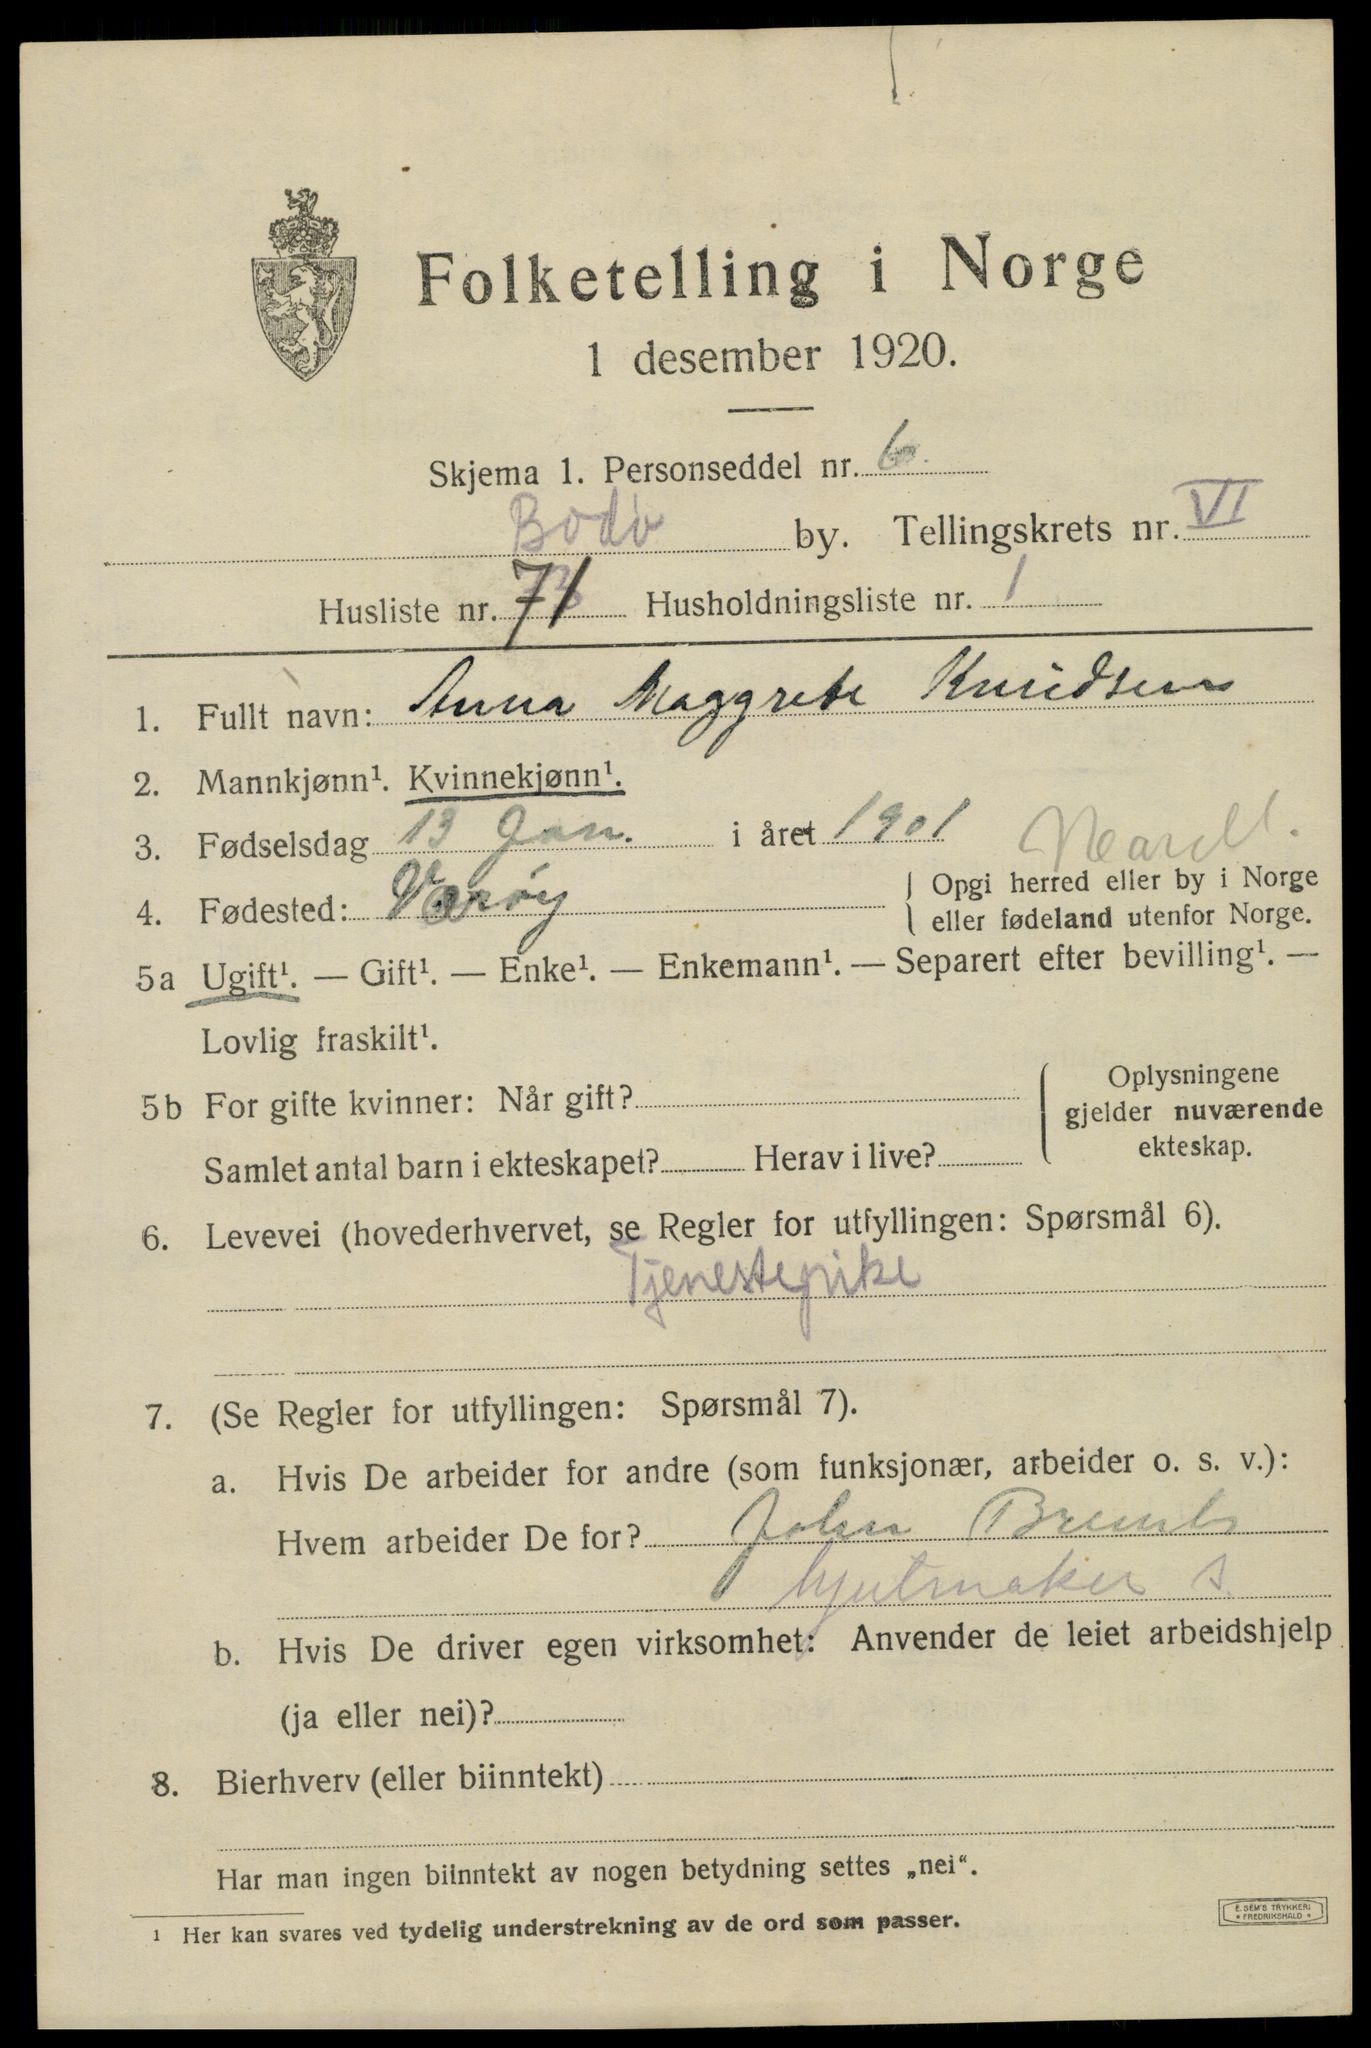 Folketelling i Norge
1 desember 1920.
Skjema 1. Personseddel nr. 6.
Bodø by. Tellingskrets nr. VI
Husliste nr. 71 Husholdningsliste nr. 1
1. Fullt navn: Anna Maggrete Knudsen
2. Mannkjønn¹. Kvinnekjønn¹.
3. Fødselsdag 13 Jan. i året 1901
4. Fødested: Værøy { Opgi herred eller by i Norge
eller fødeland utenfor Norge.
5a Ugift¹. — Gift¹. — Enke¹. — Enkemann¹. — Separert efter bevilling¹. —
Lovlig fraskilt¹.
5b For gifte kvinner: Når gift?
Samlet antal barn i ekteskapet? Herav i live?
Oplysningene
gjelder nuværende
ekteskap.
6. Levevei (hovederhvervet, se Regler for utfyllingen: Spørsmål 6).
Tjenestepike
7. (Se Regler for utfyllingen: Spørsmål 7).
a. Hvis De arbeider for andre (som funksjonær, arbeider o. s. v.):
Hvem arbeider De for? John
s.
b. Hvis De driver egen virksomhet: Anvender de leiet arbeidshjelp
(ja eller nei)?
8. Bierhverv (eller biinntekt)
Har man ingen biinntekt av nogen betydning settes „nei“.
¹ Her kan svares ved tydelig understrekning av de ord som passer.
E. SEM'S TRYKKERI
* FREDRIKSHALD *